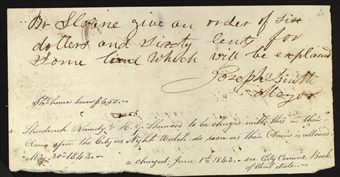 Dr Sloane give an order of six
dollars and Sixty Cents for
Some land Which will be explained
Joseph Smith
Mayor
$6.60.
Shadrach Roundy & H. G. Sherwood to be charged with this in their
upon the City as Night Watch, as soon as their is allowed
May 30th 1843.
charged June 1st 1843. see City Council Book
of that date.